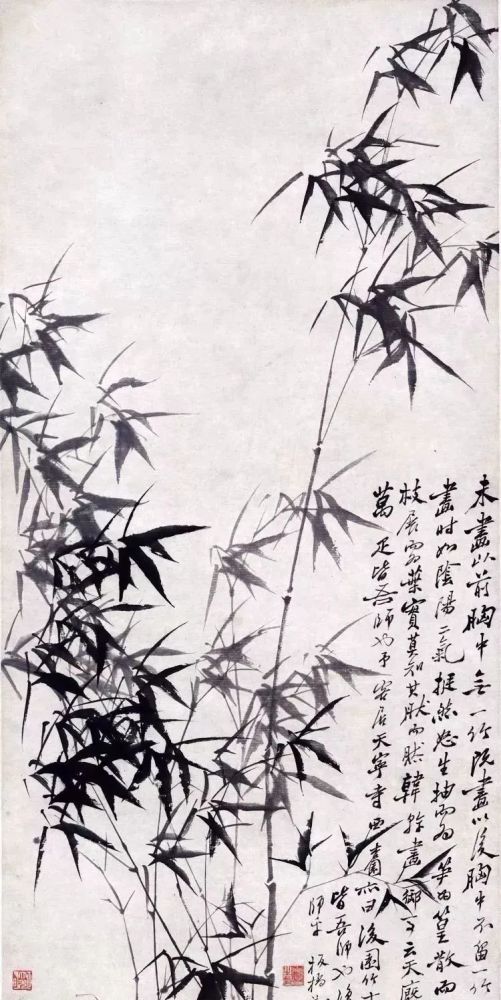 未畫以前胸中無一竹既畫以後胸中不留一竹
畫時如陰陽二氣挺然怒生抽而為笋為篁散而
枝展而為葉實莫知其然而然韓幹畫御馬云天廄
萬匹皆吾師也予客居天寧寺西杏園亦曰後園竹
皆吾師也
師乎 板橋